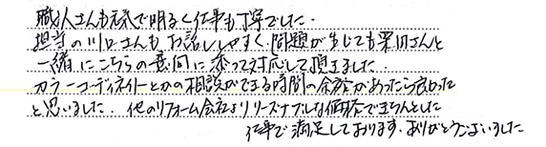 職人さんも元気で明るく仕事も丁寧でした。
担当の川口さんもお話ししやすく、問題が生じても栗田さんと
一緒にこちらの意向に添って対応して頂きました。
カラーコーディネイトとかの相談ができる時間の余裕があったら良かった
と思いました。他のリフォーム会社よりリーズナブルな価格できちんとした
仕事で満足しております。ありがとうございました